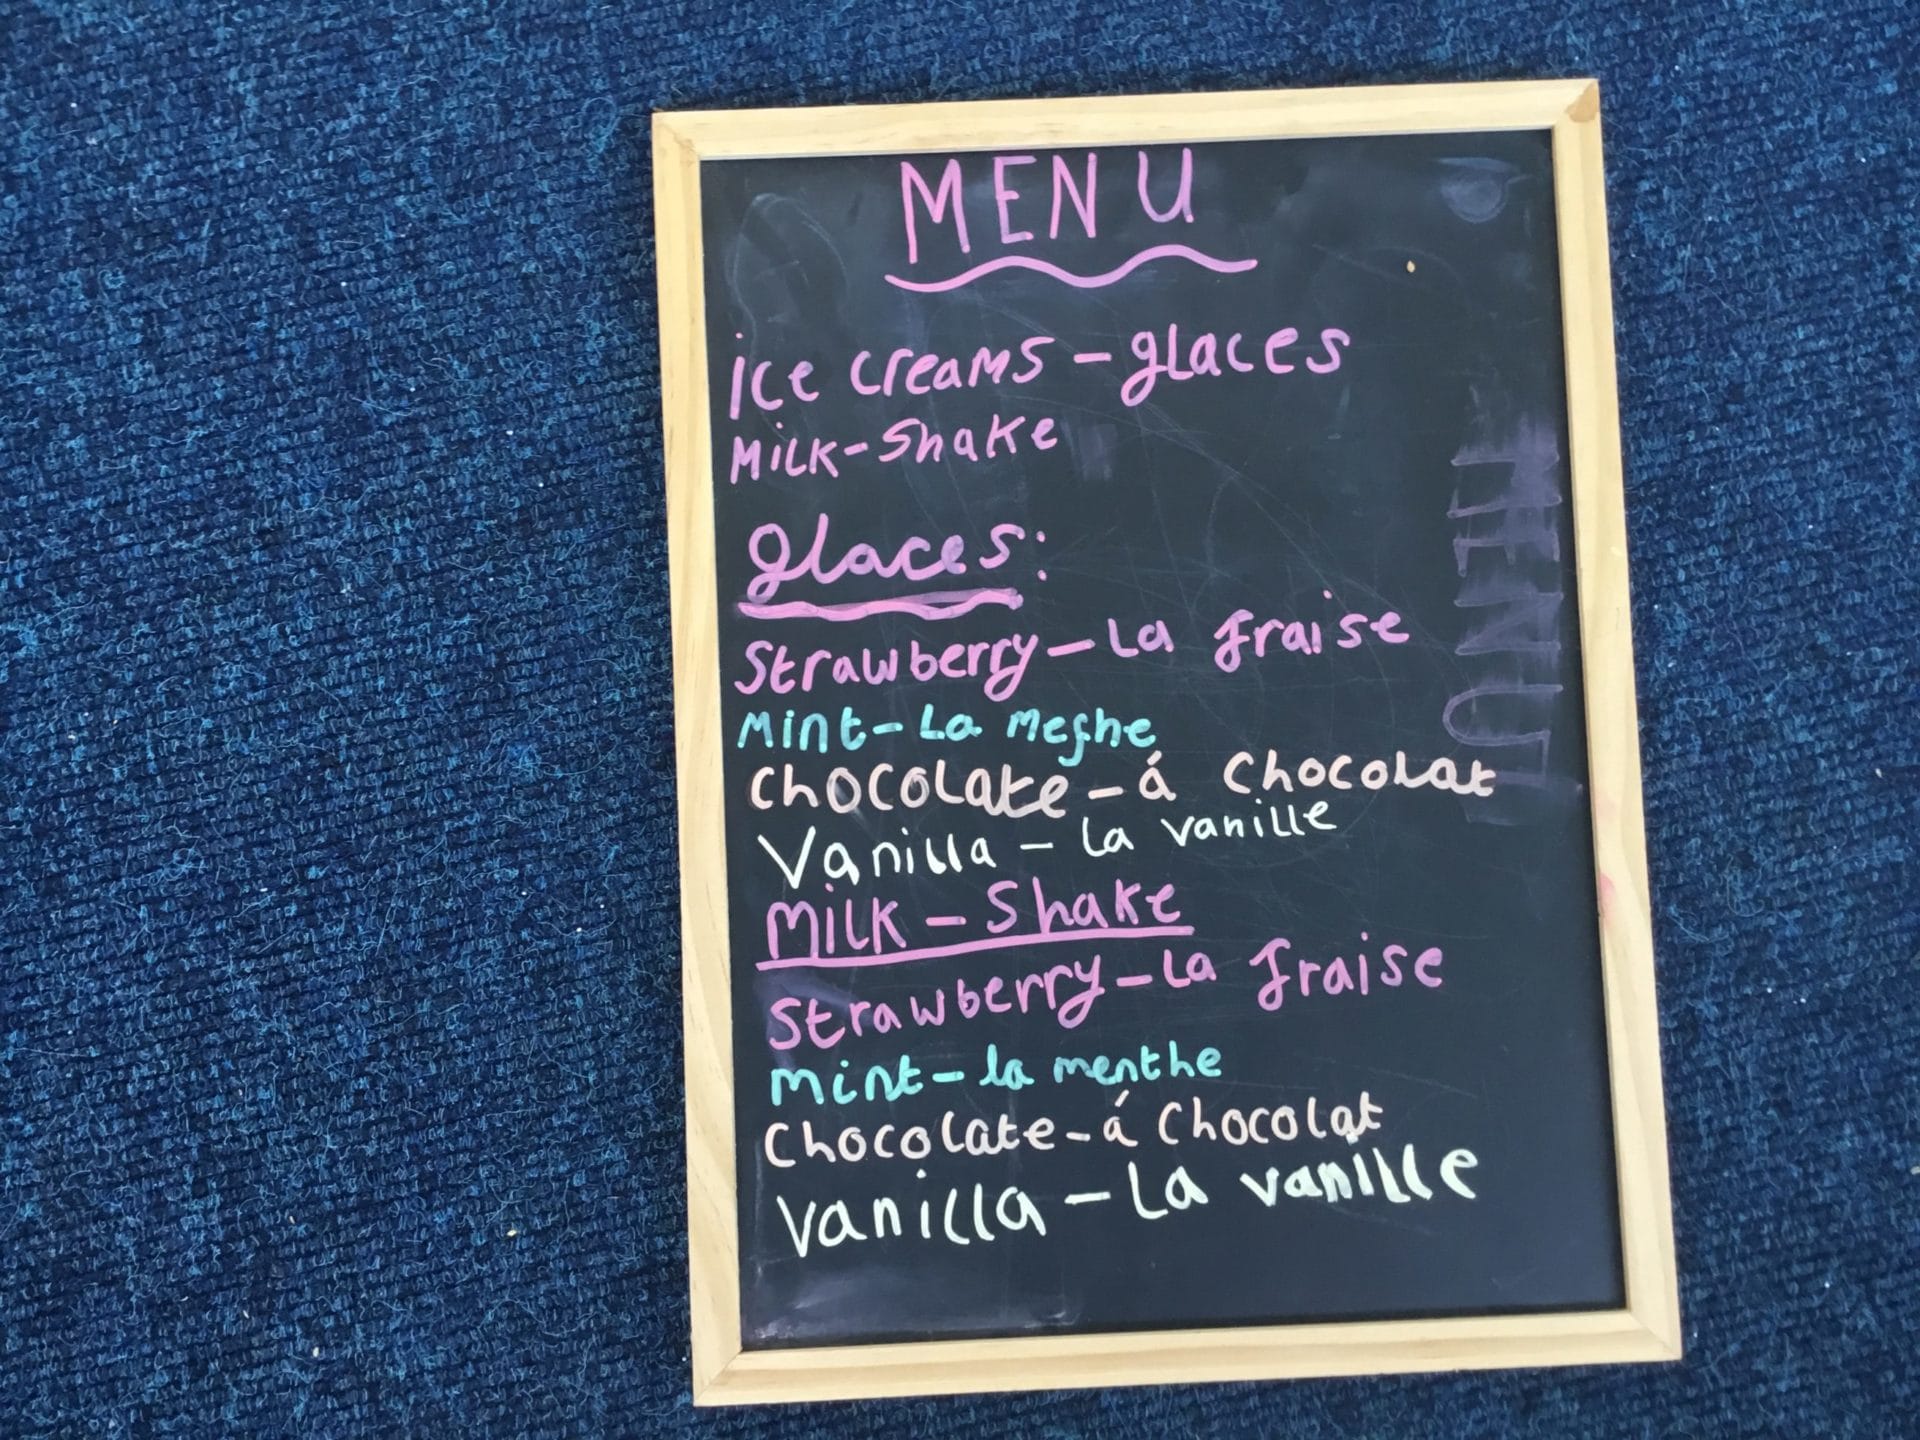 MENU
ice creams - glaces
Milk-Shake
glaces:
Strawberry - La fraise
Mint - La
Chocolate - á Chocolat
Vanilla - la vanille
Milk - Shake
Strawberry - La fraise
mint - la menthe
Chocolate - á Chocolat
vanilla - La vanille
MENU